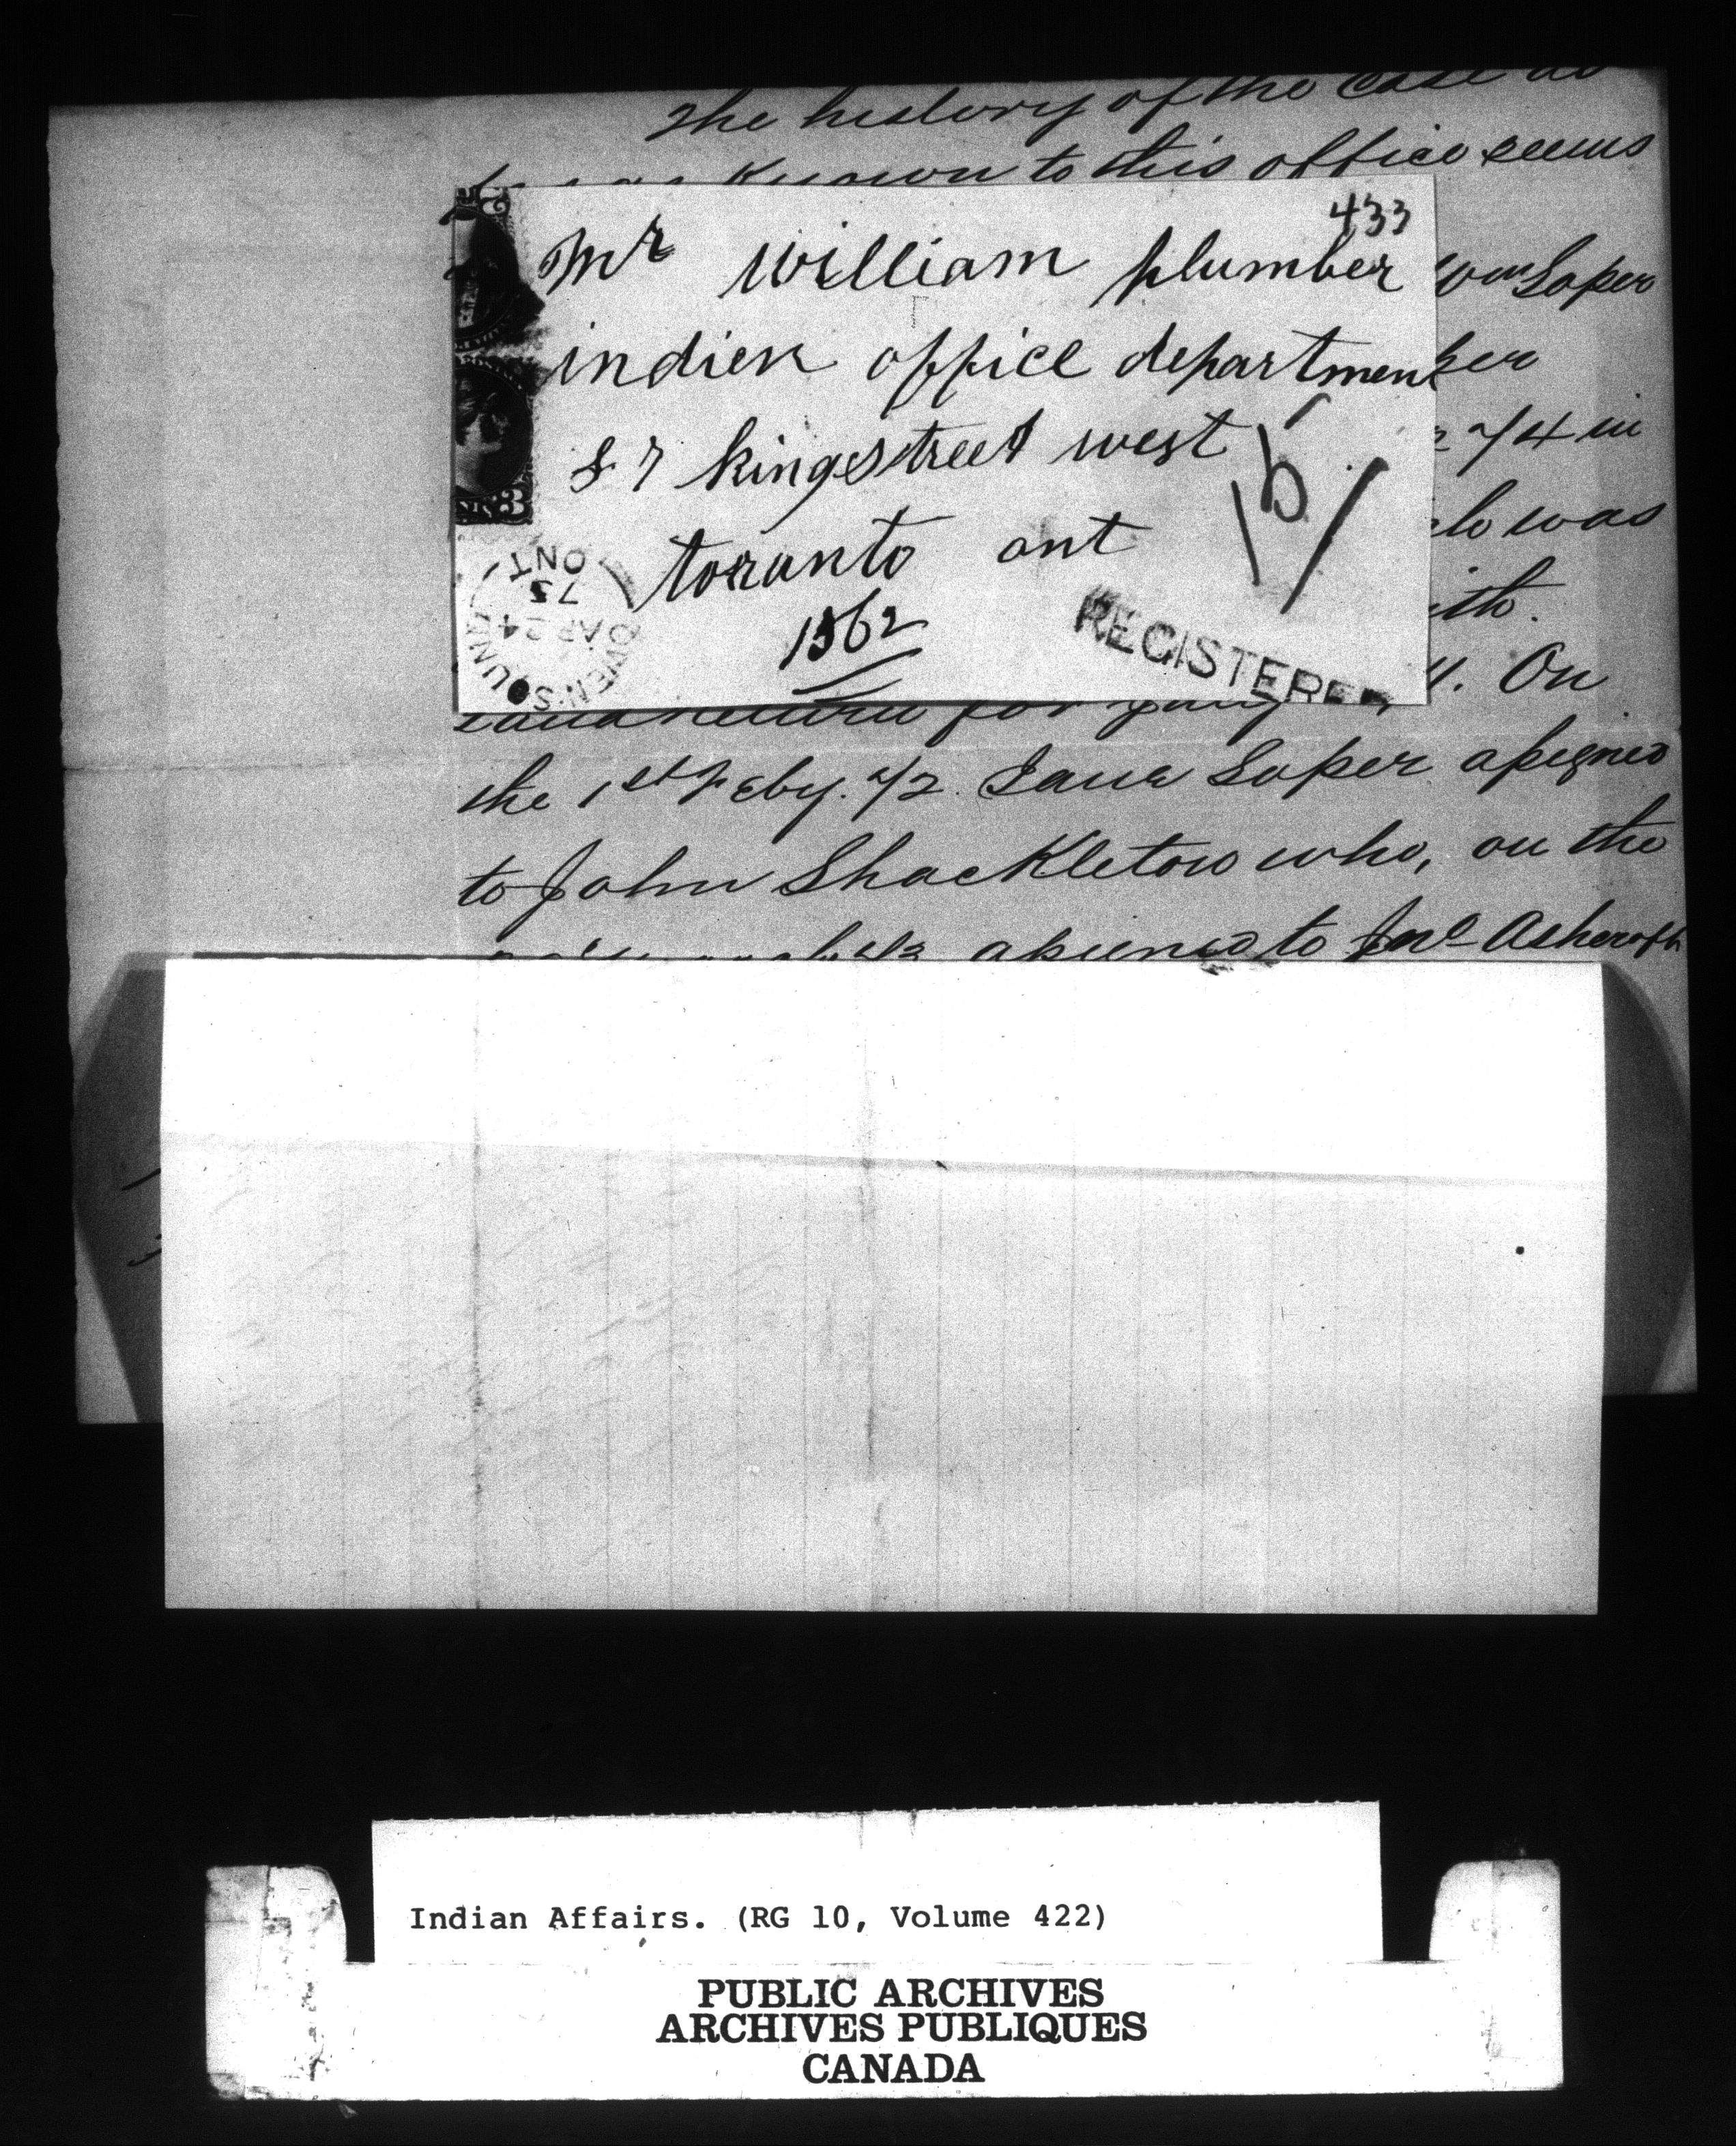 The history of the case as
known to this office seems
433
Mr William plumber
Wm Soper
indien office department
ker
87 kingestreet west
74 in
b/
was
toranto ont
ith.
1562
REGISTERED
OWEN SOUND
AP 24
75
ONT
3
for
On
the 1st Feby. 72 Jane Soper assigned
to John Shackleton who, on the
assigned to Jno Ashcroft
Indian Affairs. (RG 10, Volume 422)
PUBLIC ARCHIVES
ARCHIVES PUBLIQUES
CANADA